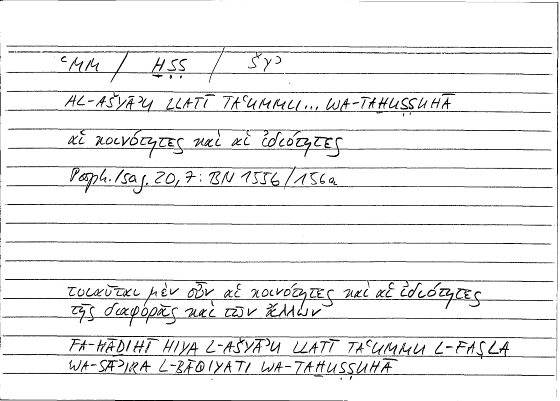 ʿMM / ḪṢṢ / ŠYʾ
AL-AŠYĀʾU LLATĪ TAʿUMMU... WA-TAḪUṢṢUHĀ
αἱ κοινότητες καὶ αἱ ἰδιότητες
Porph. Isag. 20,7: BN 1556/156a
τοιαῦται μὲν οὖν αἱ κοινότητες καὶ αἱ ἰδιότητες
τῆς διαφορᾶς καὶ τῶν ἄλλων
FA-HĀḎIHĪ HIYA L-AŠYĀʾU LLATĪ TAʿUMMU L-FAṢLA
WA-SĀʾIRA L-BĀQIYATI WA-TAḪUṢṢUHĀ